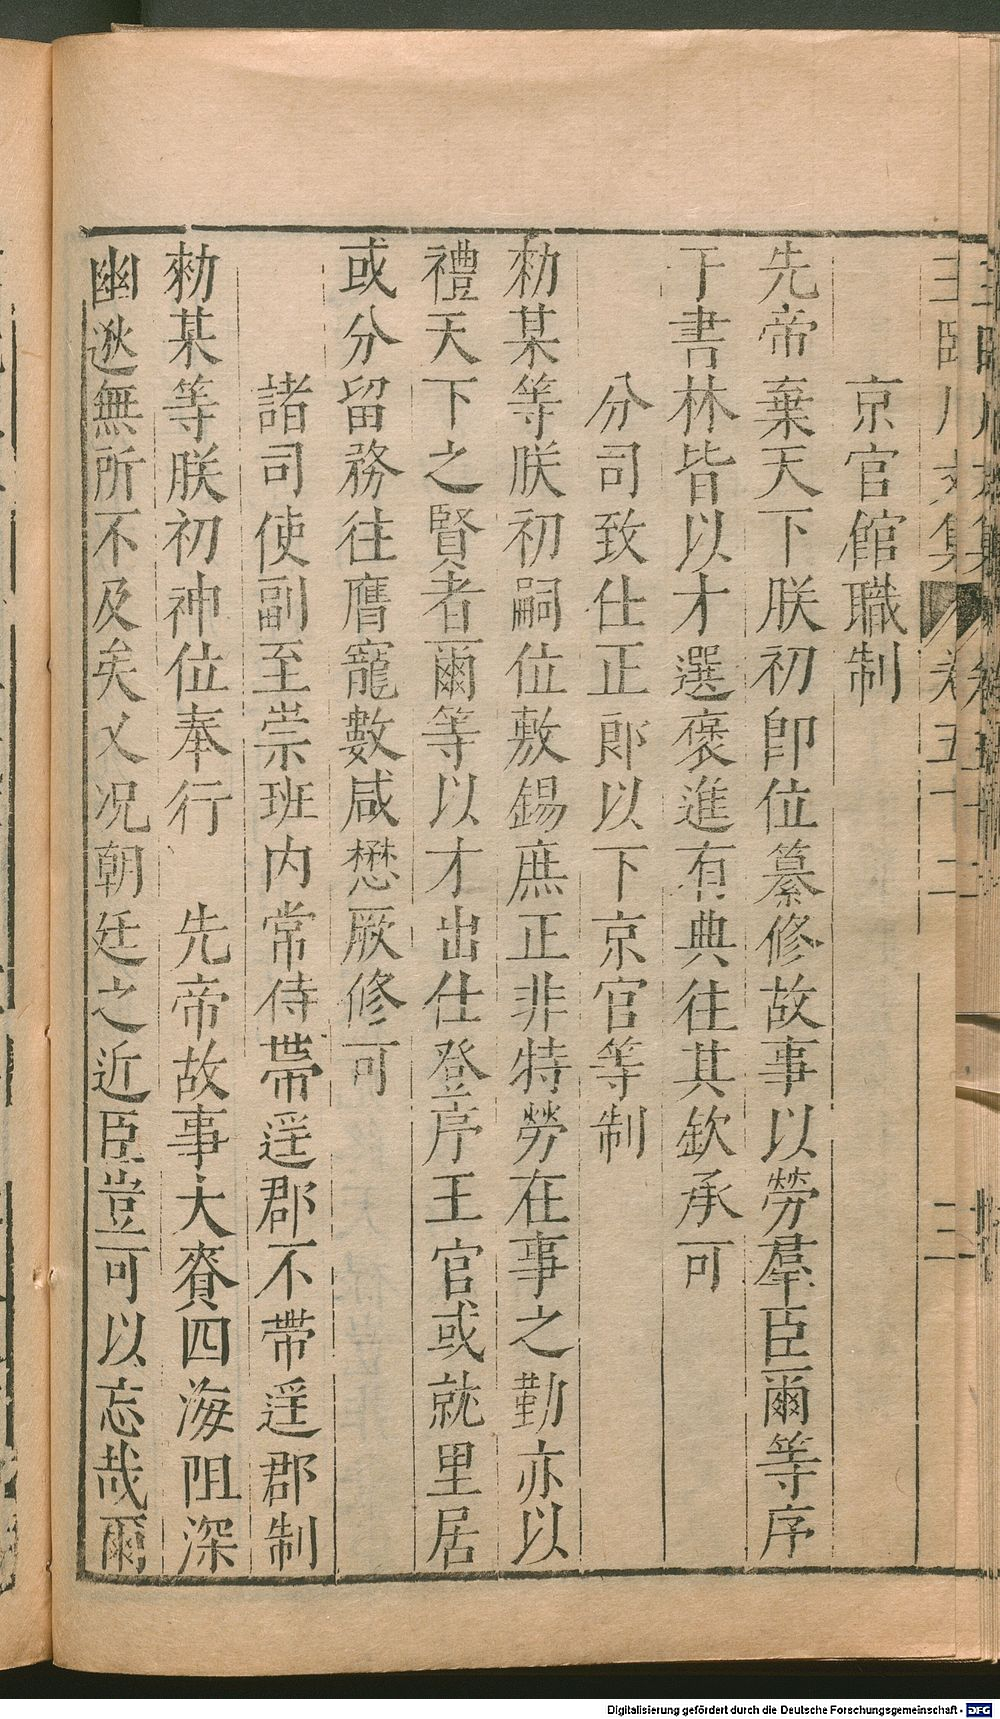 王臨川文集 卷五十二 三
京官館職制
先帝棄天下朕初卽位纂修故事以勞羣臣爾等序
于書林皆以才選褒進有典往其欽承可
分司致仕正郎以下京官等制
勑某等朕初嗣位敷錫庶正非特勞在事之勤亦以
禮天下之賢者爾等以才出仕登序王官或就里居
或分留務往膺寵數咸懋厥修可
諸司使副至崇班内常侍帶遥郡不帶遥郡制
勑某等朕初神位奉行　先帝故事大賚四海阻深
幽逖無所不及矣又况朝廷之近臣豈可以忘哉爾
Digitalisierung gefördert durch die Deutsche Forschungsgemeinschaft - DFG